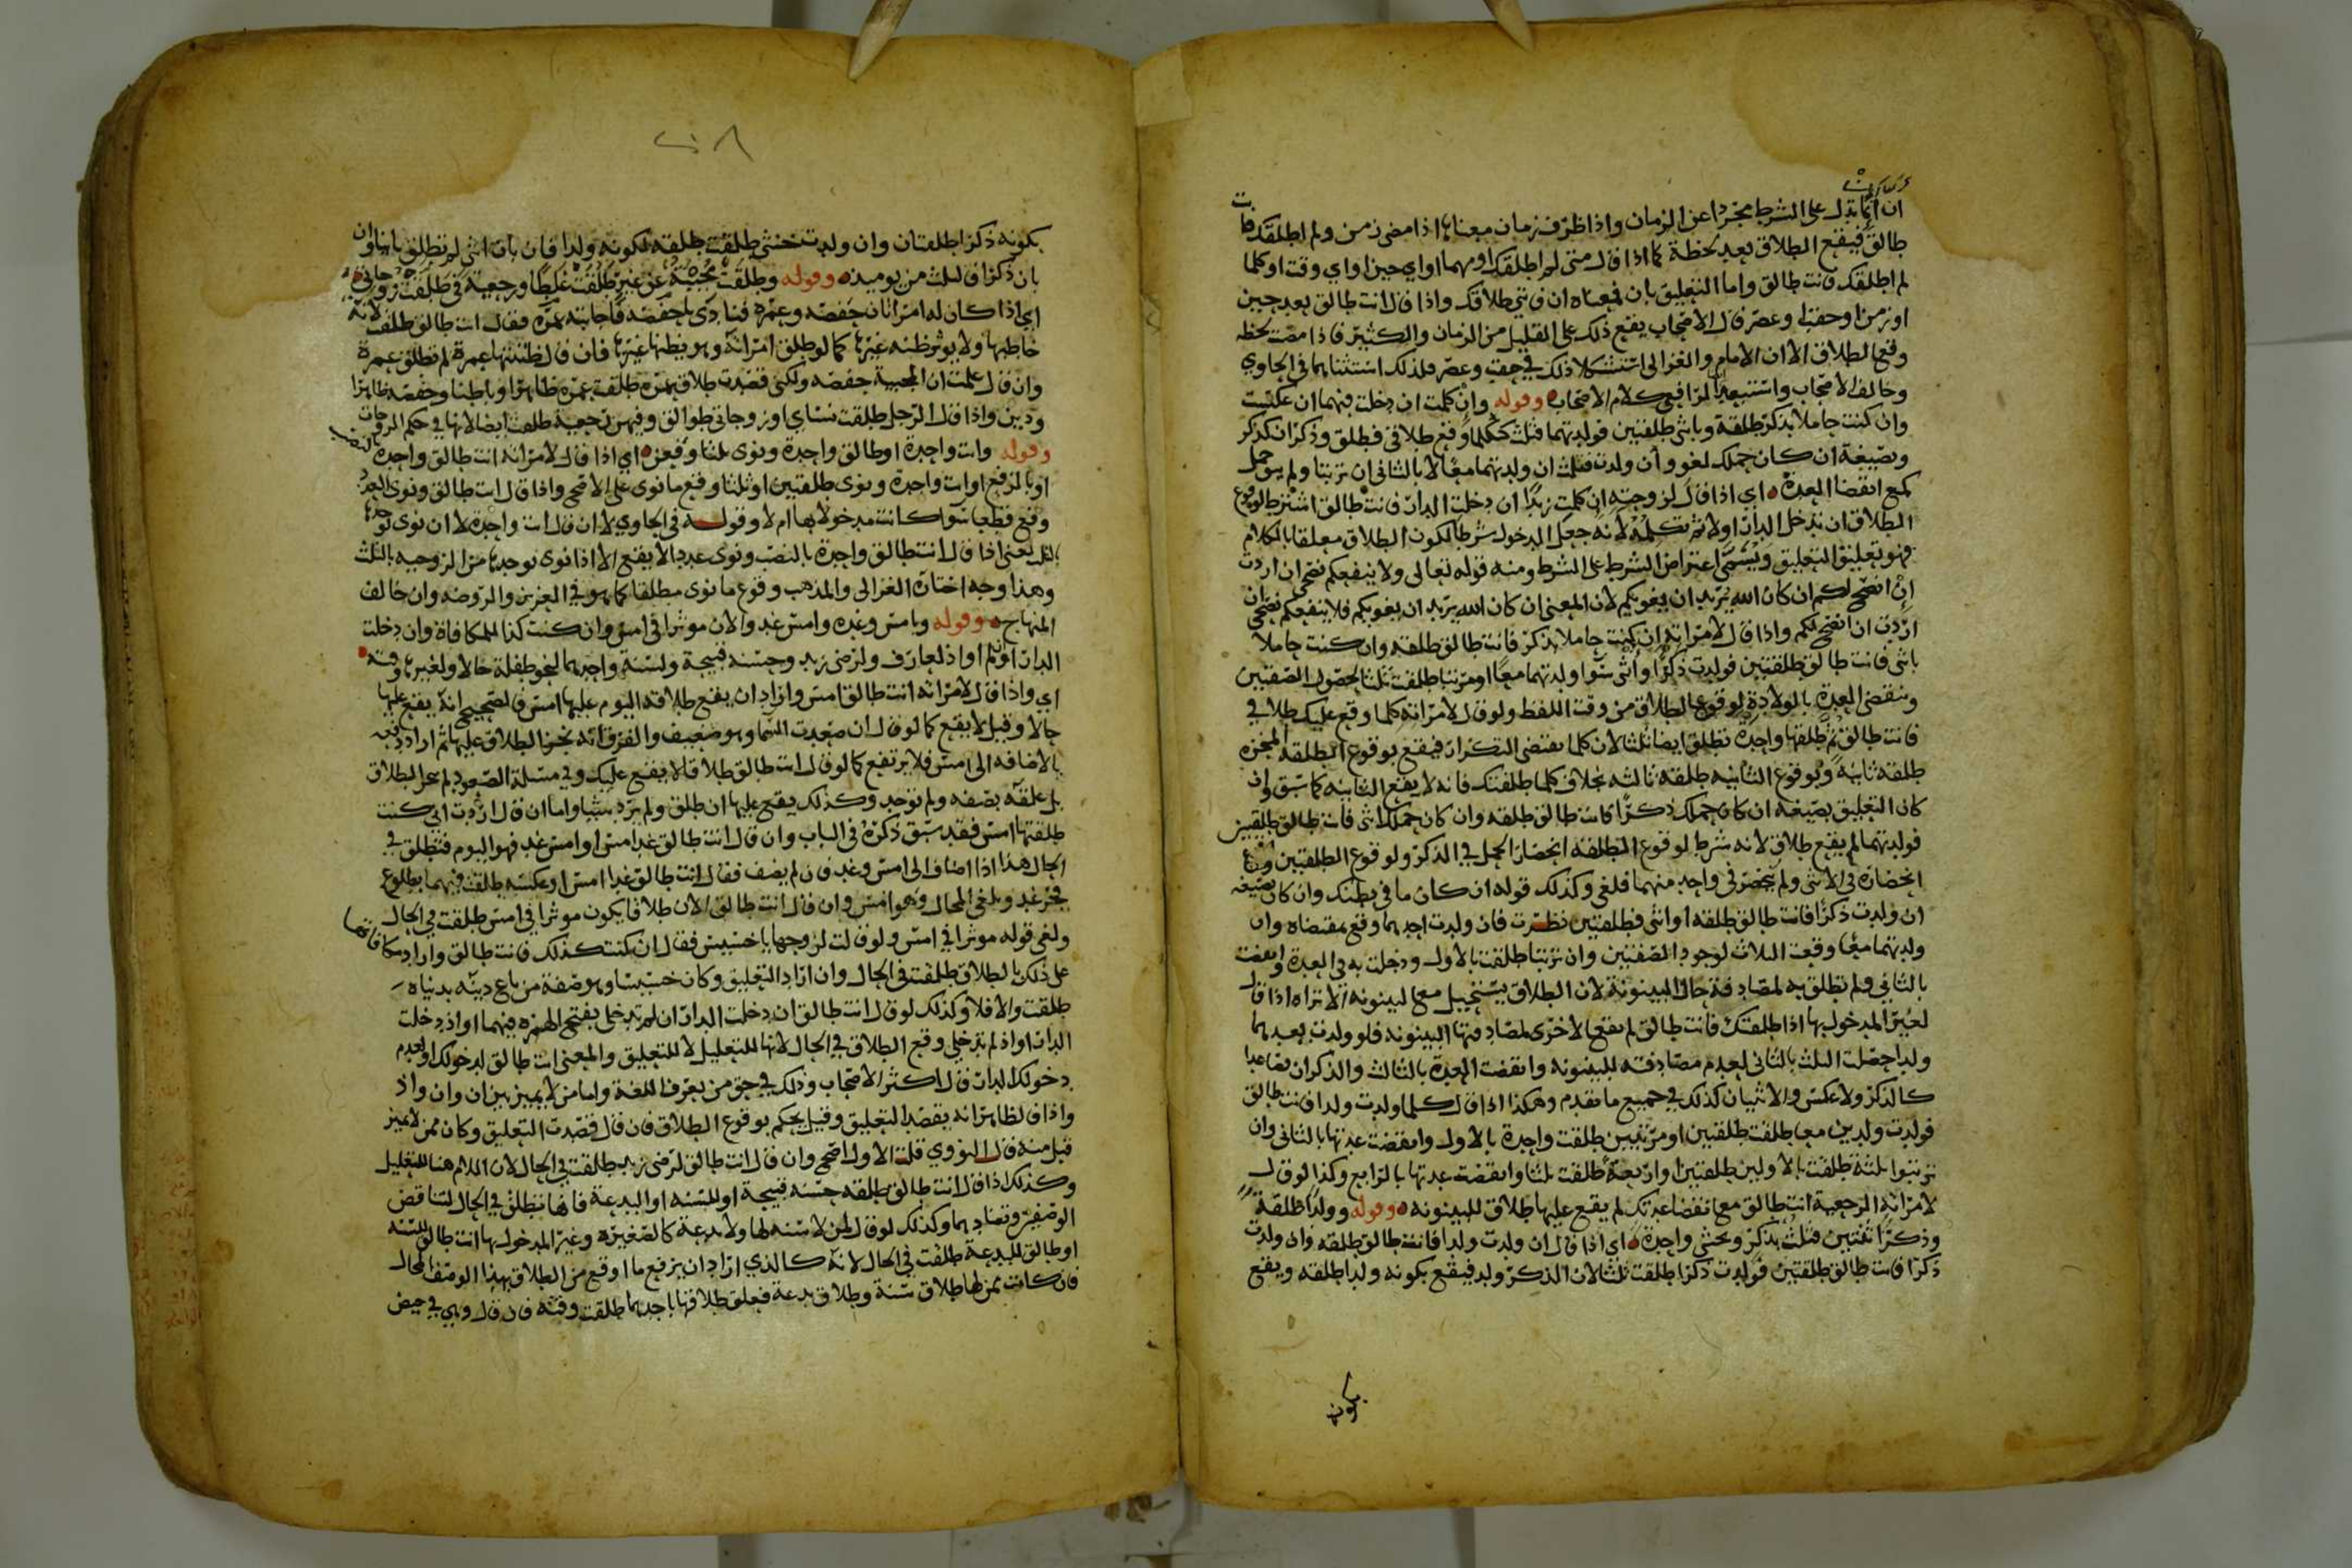 ان انما تدل على الشرط مجردا عن الزمان واذا ظرف زمان معناها اذا مضى زمن ولم اطلقك فانت
طالق فيقع الطلاق بعد لحظة كما اذا قال متى لم اطلقك او مهما او اي حين او اي وقت او كلما
لم اطلقك فانت طالق واما التعليق بان فمعناه ان فاتني طلاقك واذا قال انت طالق بعد حين
او زمن او حقب او عصر قال الاصحاب يقع ذلك على القليل من الزمان والكثير فاذا مضت لحظه
وقع الطلاق الا ان الامام والغزالي استشكلا ذلك في حقب وعصر فلذلك استثناهما في الحاوي
وخالف الاصحاب واستبعد الرافعي كلام الاصحاب وقوله وان كلمت ان دخلت فبهما ان عكست
وان كنت حاملا بذكر طلقة وبانثى طلقتين فولدتهما فثلث ككلما وقع طلاقي فطلق وذكران كذكر
وبصيغة ان كان حملك لغو وان ولدت فثلث ان ولدتهما معا لا بالثاني ان ترتبا ولم يبق حمل
كمع انقضا العدة اي اذا قال لزوجته ان كلمت زيدا ان دخلت الدار فانت طالق اشترط لوقوع
الطلاق ان تدخل الدار اولا ثم تكلمه لانه جعل الدخول شرطا لكون الطلاق معلقا بالكلام
فهو تعليق التعليق ويسمى اعتراض الشرط على الشرط ومنه قوله تعالى ولا ينفعكم نصحي ان اردت
ان انصح لكم ان كان الله يريد ان يغويكم لان المعنى ان كان الله يريد ان يغويكم فلا ينفعكم نصحي ان
اردت ان انصح لكم واذا قال لامراته ان كنت حاملا بذكر فانت طالق طلقه وان كنت حاملا
بانثى فانت طالق طلقتين فولدت ذكرا وانثى سوا ولدتهما معا او مرتبا طلقت ثلثا لحصول الصفتين
وتنقضي العدة بالولادة لوقوع الطلاق من وقت اللفظ ولو قال لامراته كلما وقع عليك طلاقي
فانت طالق ثم طلقها واحدة تطلق ايضا ثلثا لان كلما يقتضي التكرار فيقع بوقوع الطلقة المنجزه
طلقة ثانية وبوقوع الثانيه طلقة ثالثه بخلاف كلما طلقتك فانه لا يقع الثانيه كما سبق وان
كان التعليق بصيغة ان كان حملك ذكرا فانت طالق طلقه وان كان حملك انثى فانت طالق طلقتين
فولدتهما لم يقع طلاق لانه شرط لوقوع الطلقة انحصار الحمل في الذكر ولوقوع الطلقتين
انحصاره في الانثى ولم ينحصر في واحد منهما فلغي وكذلك قوله ان كان ما في بطنك وان كان بصيغه
ان ولدت ذكرا فانت طالق طلقه او انثى فطلقتين نظرت فان ولدت احدهما وقع بمقتضاه وان
ولدتهما معا وقعت الثلاث لوجود الصفتين وان ترتبا طلقت بالاول ودخلت به في العدة وانقضت
بالثاني ولم تطلق به لمصادفة حال البينونة لان الطلاق يستحيل مع البينونه الا تراه اذا قال
لغير المدخول بها اذا طلقتك فانت طالق لم يقع الاخرى لمصادفتها البينونه فلو ولدت بعدهما
ولدا حصلت الثلث بالثاني لعدم مصادفته للبينونه وانقضت العدة بالثالث والذكران فصاعدا
كالذكر ولا عكس والانثيان كذلك في جميع ما تقدم وهكذا اذا قال كلما ولدت ولدا فانت طالق
فولدت ولدين معا طلقت طلقتين او مرتبين طلقت واحدة بالاول وانقضت عدتها بالثاني وان
ترتبوا ثلثة طلقت بالاولين طلقتين او اربعة طلقت ثلثا وانقضت عدتها بالرابع وكذا لو قال
لامراته الرجعية انت طالق مع انقضا عدتك لم يقع عليها طلاق للبينونه وقوله وولدا طلقة
وذكرا ثنتين فثلث بذكر وبخنثى واحدة اي اذا قال ان ولدت ولدا فانت طالق طلقه وان ولدت
ذكرا فانت طالق طلقتين فولدت ذكرا طلقت ثلثا لان الذكر ولد فيقع بكونه ولدا طلقه ويقع
بكونه
٢٠٨
بكونه ذكرا طلقتان وان ولدت خنثى طلقت طلقه لكونه ولدا فان بان انثى لم تطلق بانيا وان
بان ذكرا فثلث من يوميذ وقوله وطلقت مجيبة عن غير طلقت غلطا ورجعية في طلقت زوجاتي
اي اذا كان له امراتان حفصه وعمره فنادى يا حفصه فاجابته عمره فقال انت طالق طلقت لانه
خاطبها ولا يوثر ظنه غيرها كما لو طلق امراته وهو يظنها غيرها فان قال ظننتها عمرة لم تطلق عمرة
وان قال علمت ان المجيبة حفصه ولكني قصدت طلاق عمره طلقت عمره ظاهرا وباطنا وحفصه ظاهرا
ودين واذا قال الرجل طلقت نساي او زوجاتي طوالق وفيهن رجعية طلقت ايضا لانها في حكم الزوجات
وقوله وانت واحدة او طالق واحدة ونوى ثلثا وقعن اي اذا قال لامراته انت طالق واحدة بالنصب
او بالرفع او انت واحدة ونوى طلقتين او ثلثا وقع ما نوى على الاصح واذا قال انت طالق ونوى العدد
وقع قطعا سوا كانت مدخولا بها ام لا وقوله في الحاوي لا ان قال انت واحدة لا ان نوى توحدها
بالثلث يعني اذا قال انت طالق واحدة بالنصب ونوى عددا لا يقع الا اذا نوى توحدها من الزوجيه بالثلث
وهذا وجه اختاره الغزالي والمذهب وقوع ما نوى مطلقا كما هو في العزيز والروضه وان خالف
المنهاج وقوله وبامس وغده وامس غد والان موثرا في امس وان كنت كذا للمكافاة وان دخلت
الدار او لم او اذ لعارف ولرضى زيد وحسنة قبيحة ولسنة واحدهما لنحو طفلة حالا ولغيرها وقته
اي واذا قال لامراته انت طالق امس واراد ان يقع طلاقه اليوم عليها امس فالصحيح انه يقع عليها
حالا وقيل لا يقع كما لو قال ان صعدت السما وهو ضعيف والفرق انه نجز الطلاق عليها ثم اراد رفعه
بالاضافه الى امس فلا يرتفع كما لو قال انت طالق طلاقا لا يقع عليك وفي مسئلة الصعود لم ينجز الطلاق
بل علقه بصفه ولم توجد وكذلك يقع عليها ان طلق ولم يرد شيئا واما ان قال اردت اني كنت
طلقتها امس فقد سبق ذكره في الباب وان قال انت طالق غد امس او امس غد فهو اليوم فتطلق في
الحال هذا اذا اضاف الى امس وغد فان لم يضف فقال انت طالق غدا امس او عكسه طلقت فيهما بطلوع
فجر غد ويلغى المحال وهو امس وان قال انت طالق الان طلاقا يكون موثرا في امس طلقت في الحال
ولغى قوله موثرا في امس ولو قالت لزوجها يا خسيس فقال ان كنت كذلك فانت طالق واراد مكافاتها
على ذلك بالطلاق طلقت في الحال وان اراد التعليق وكان خسيسا وهو صفة من باع دينه بدنياه
طلقت والا فلا وكذلك لو قال انت طالق ان دخلت الدار ان لم تدخلي بفتح الهمزه فيهما او اذ دخلت
الدار او اذ لم تدخلي وقع الطلاق في الحال لانها للتعليل لا للتعليق والمعنى انت طالق لدخولك او لعدم
دخولك الدار قال اكثر الاصحاب وذلك في حق من يعرف اللغة واما من لا يميز بين ان وان واذ
واذا فالظاهر انه يقصد التعليق وقيل يحكم بوقوع الطلاق فان قال قصدت التعليق وكان ممن لا يميز
قبل منه قال النووي قلت الاول اصح وان قال انت طالق لرضى زيد طلقت في الحال لان اللام هنا للتعليل
وكذلك اذا قال انت طالق طلقه حسنه قبيحة او للسنه او البدعة فانها تطلق في الحال لتناقض
الوصفين وتضادهما وكذلك لو قال لمن لا سنه لها ولا بدعة كالصغيره وغير المدخول بها انت طالق للسنه
او طالق للبدعة طلقت في الحال لانه كالذي اراد ان يرفع ما اوقع من الطلاق بهذا الوصف المحال
فان كانت ممن لها طلاق سنة وطلاق بدعة فعلق طلاقها باحدهما طلقت وقته فان قال وهي في حيض